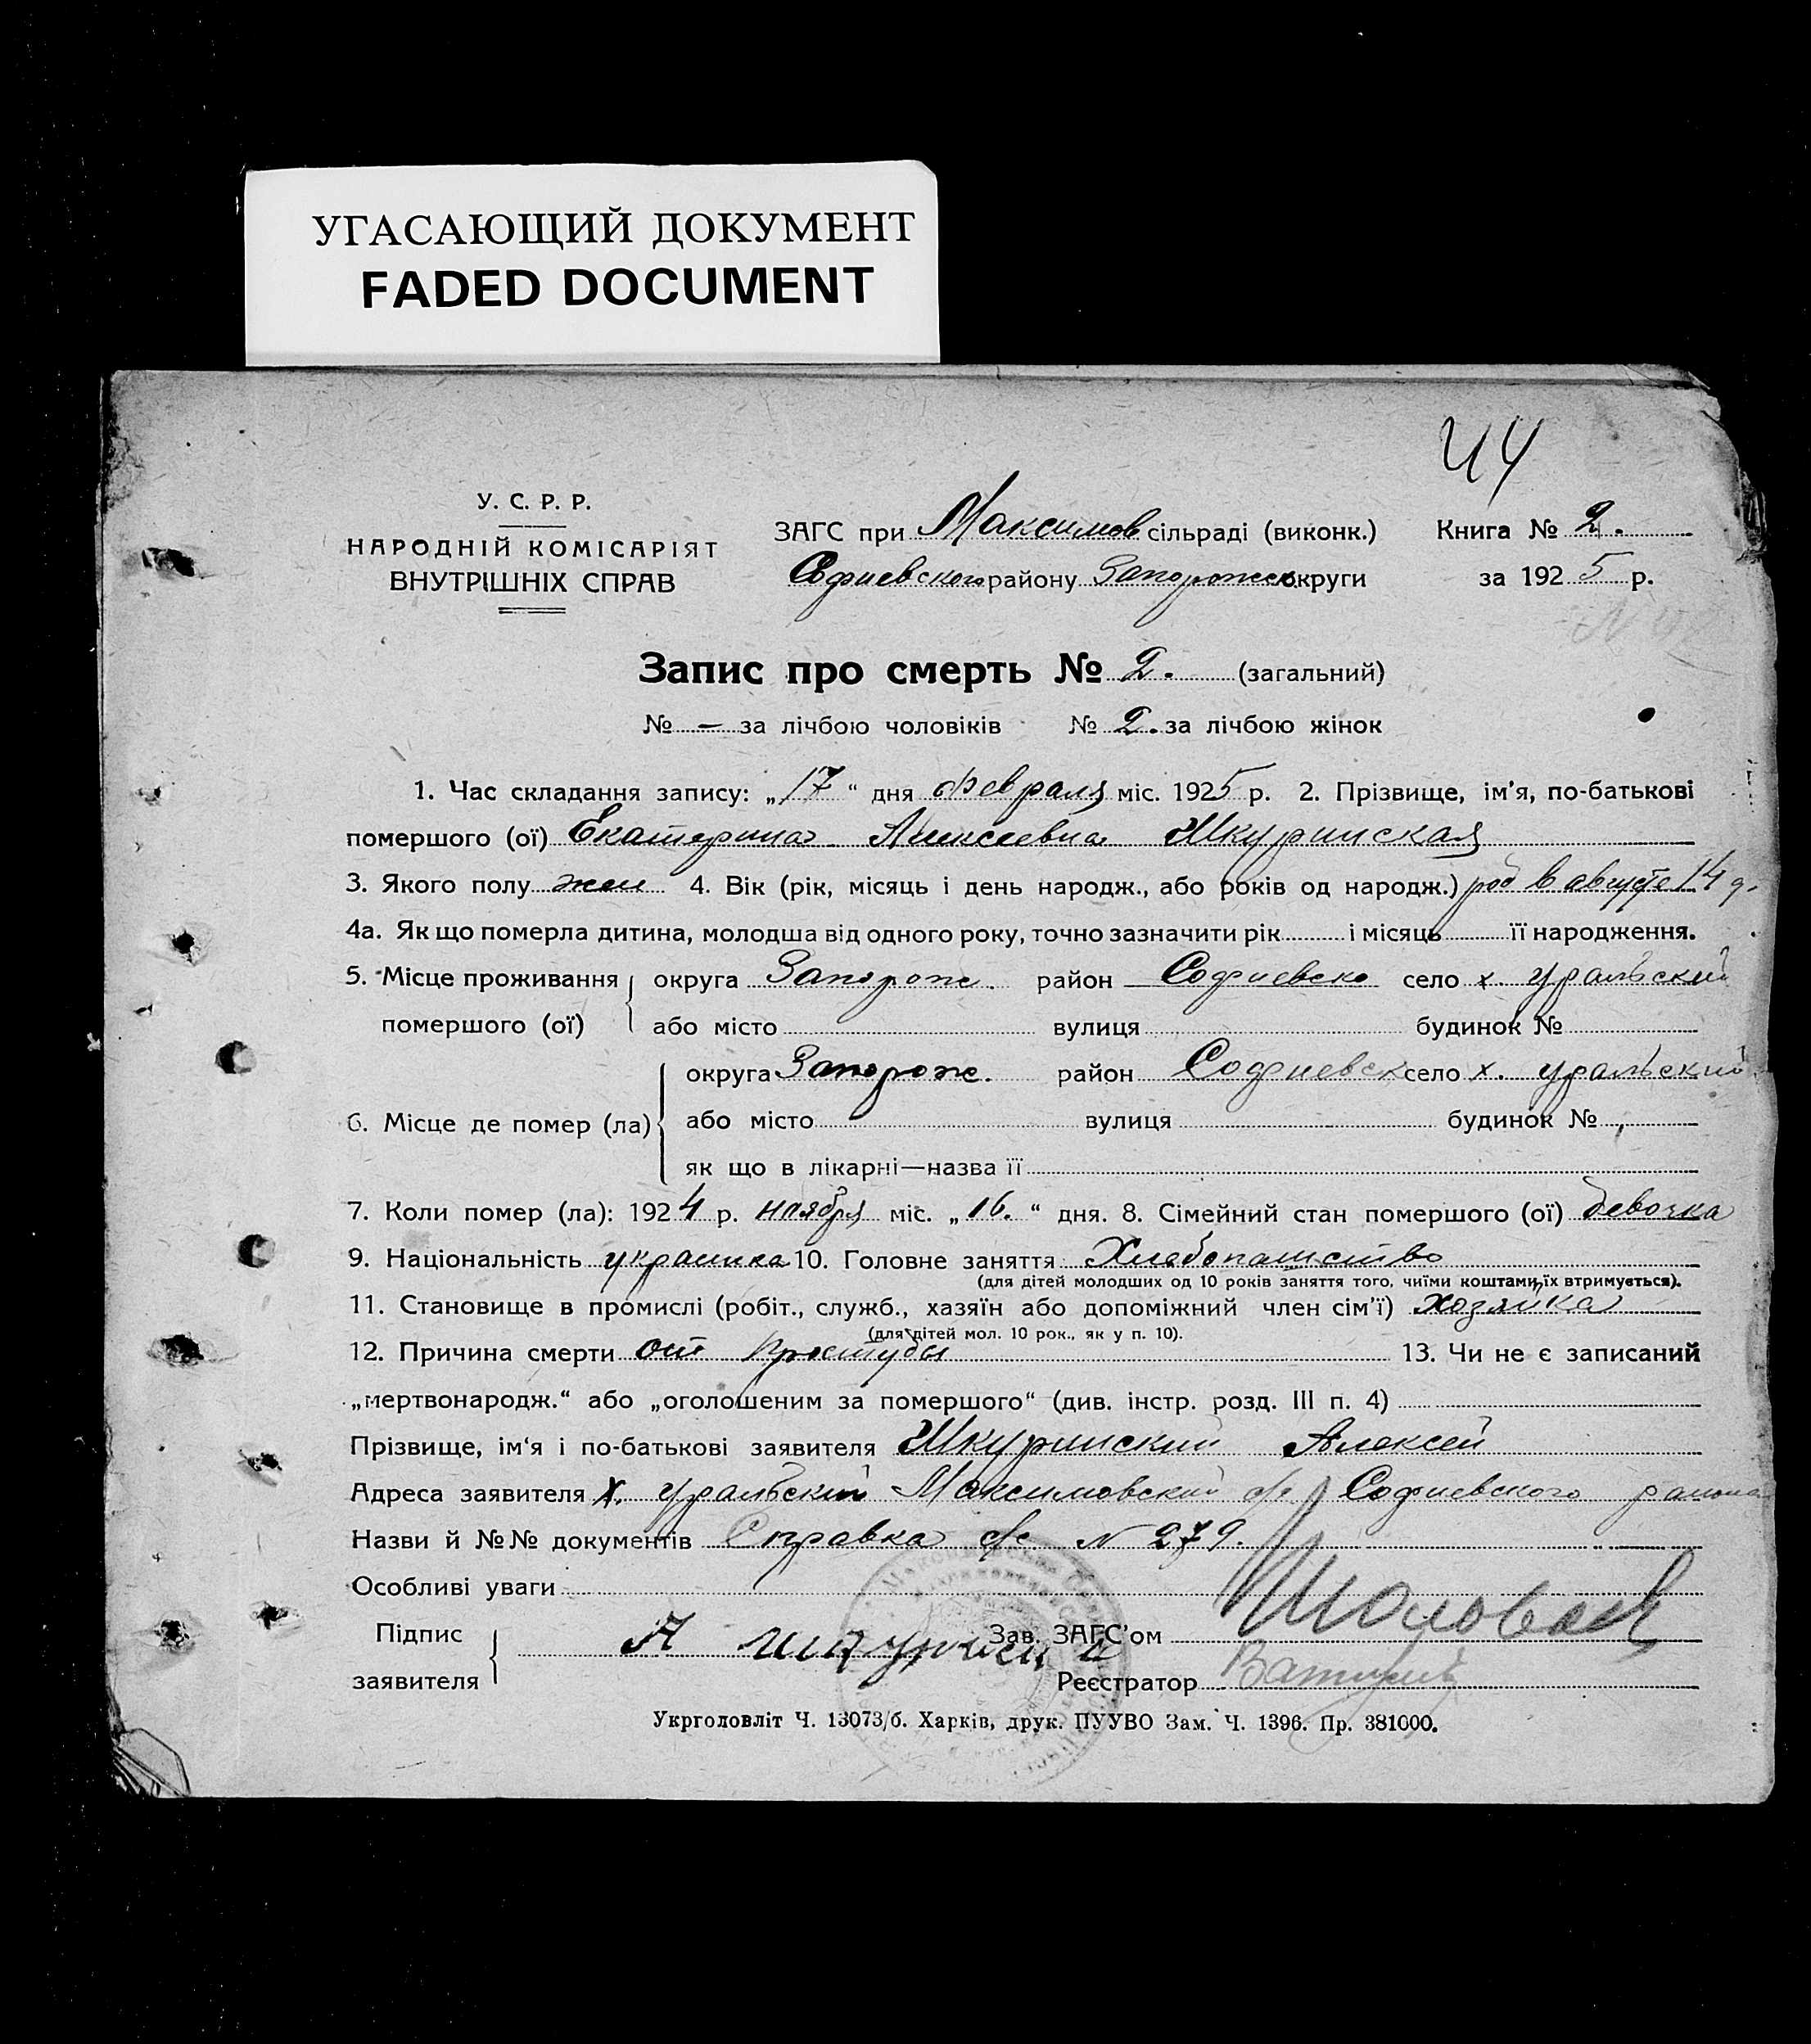 УГАСАЮЩИЙ ДОКУМЕНТ
FADED DOCUMENT
44
У. С. Р. Р.
НАРОДНІЙ КОМІСАРІЯТ
ВНУТРІШНІХ СПРАВ
ЗАГС при Максимов сільраді (виконк.) Книга № 2.
Софиевского району Запорожск округи за 1925 р.
Запис про смерть № 2. (загальний)
№ — за лічбою чоловіків № 2. за лічбою жінок
1. Час складання запису: „17“ дня февраля міс. 1925 р. 2. Прізвище, ім'я, по-батькові
помершого (ої) Екатерина Алексеевна Шкуринская
3. Якого полу жен 4. Вік (рік, місяць і день народж., або років од народж.) род в августе 14 г.
4а. Як що померла дитина, молодша від одного року, точно зазначити рік і місяць її народження.
5. Місце проживання округа Запорож. район Софиевско село х. Уральский
помершого (ої) або місто вулиця будинок №
округа Запорож. район Софиевск село х. Уральский
6. Місце де помер (ла) або місто вулиця будинок №
як що в лікарні—назва її
7. Коли помер (ла): 1924 р. ноября міс. „16.“ дня. 8. Сімейний стан помершого (ої) девочка
9. Національність украинка 10. Головне заняття Хлебопашство
(для дітей молодших од 10 років заняття того, чиїми коштами, їх втримується).
11. Становище в промислі (робіт., служб., хазяїн або допоміжний член сім'ї) Хозяйка
(для дітей мол. 10 рок., як у п. 10).
12. Причина смерти от простуды 13. Чи не є записаний
„мертвонародж.“ або „оголошеним за помершого“ (див. інстр. розд. III п. 4)
Прізвище, ім'я і по-батькові заявителя Шкуринский Алексей
Адреса заявителя х. Уральский Максимовский с/с Софиевского района
Назви й №№ документів Справка с/с N 279.
Особливі уваги
Підпис
заявителя
Зав. ЗАГС'ом
Реєстратор
Укрголовліт Ч. 13073/б. Харків, друк. ПУУВО Зам. Ч. 1396. Пр. 381000.